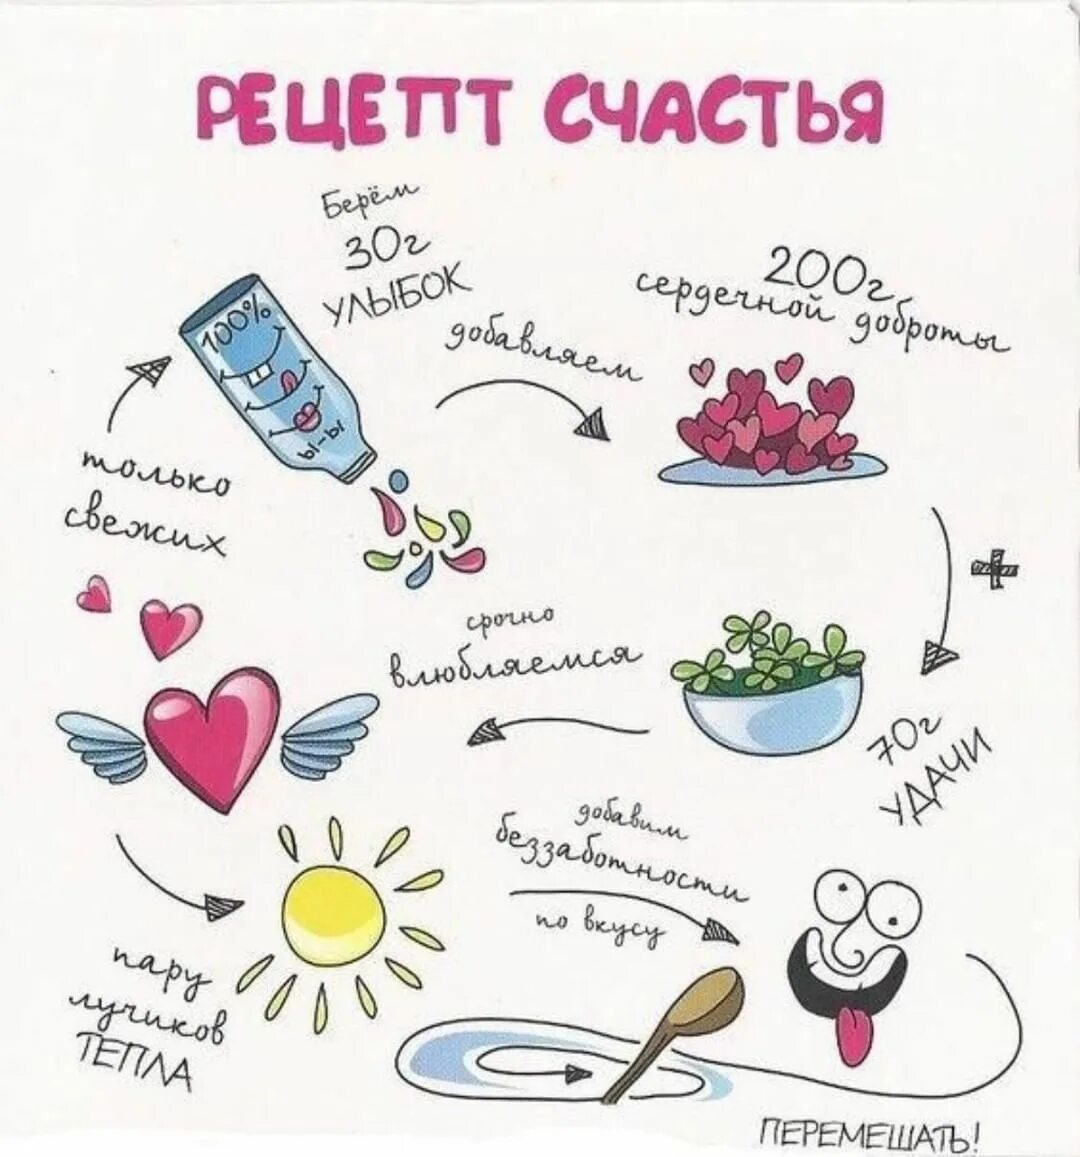 РЕЦЕПТ СЧАСТЬЯ
Берём
30г
УЛЫБОК
100%
Ы-Ы
только
свежих
добавляем
200г
сердечной доброты
+
70г
УДАЧИ
срочно
влюбляемся
пару
лучиков
ТЕПЛА
добавим
беззаботности
по вкусу
ПЕРЕМЕШАТЬ!